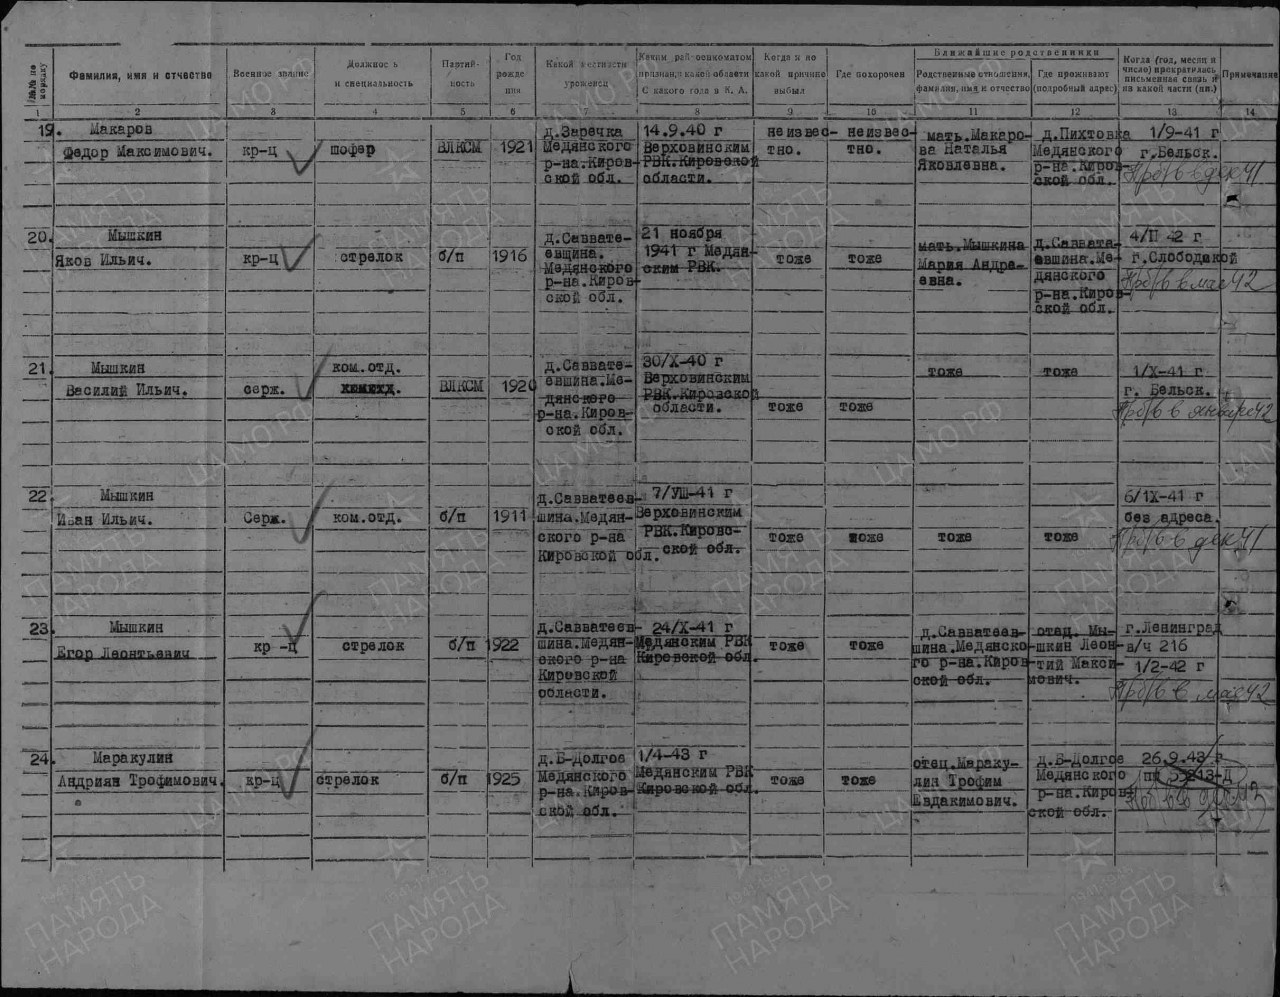 №№ по порядку
Фамилия, имя и отчество
Военное звание
Должность и специальность
Партий-
ность
Год рожде ния
Какой местности уроженец
Каким рай оенкоматом призван, и какой области С какого года в К. А.
Когда и по какой причине выбыл
Где похоронен
Ближайшие родственники
Родственные отношения, фамилия, имя и отчество
Где проживают (подробный адрес)
Когда (год, месяц и число) прекратилась письменная связь и из какой части (пп.)
Примечание
1 2 3 4 5 6 7 8 9 10 11 12 13 14
19. Макаров
Федор Максимович.
кр-ц
шофер
ВЛКСМ
1921
д.Заречка
Медянского
р-на.Киров-
ской обл.
14.9.40 г
Верховинским
РВК.Кировской
области.
неизвес-
тно.
неизвес-
тно.
мать.Макаро-
ва Наталья
Яковлевна.
д.Пихтовка
Медянского
р-на.Киров-
ской обл.
1/9-41 г
г.Бельск.
20. Мышкин
Яков Ильич.
кр-ц
стрелок
б/п
1916
д.Саввате-
евщина.
Медянского
р-на.Киров-
ской обл.
21 ноября
1941 г Медян-
ским РВК.
тоже
тоже
мать.Мышкина
Мария Андре-
евна.
д.Саввате-
евшина.Ме-
дянского
р-на.Киров-
ской обл.
4/П 42 г
г.Слободской
21. Мышкин
Василий Ильич.
серж.
ком.отд.
ВЛКСМ
1920
д.Саввате-
евшина.Ме-
дянского
р-на.Киров-
ской обл.
30/Х-40 г
Верховинским
РВК.Кировской
области.
тоже
тоже
тоже
тоже
1/Х-41 г
г. Бельск.
22. Мышкин
Иван Ильич.
Серж.
ком.отд.
б/п
1911
д.Савватеев-
шина.Медян-
ского р-на
Кировской обл.
7/УШ-41 г
Верховинским
РВК.Кировс-
ской обл.
тоже
тоже
тоже
тоже
6/1Х-41 г
без адреса.
23. Мышкин
Егор Леонтьевич
кр -ц
стрелок
б/п
1922
д.Савватеев-
шина.Медян-
ского р-на
Кировской
области.
24/Х-41 г
Медянским РВК
Кировской обл.
тоже
тоже
д.Савватеев-
шина.Медянско-
го р-на.Киров-
ской обл.
отец. Мы-
шкин Леон-
тий Макси-
мович.
г.Ленинград
в/ч 216
1/2-42 г
24. Маракулин
Андриян Трофимович.
кр-ц
стрелок
б/п
1925
д.Б-Долгое
Медянского
р-на.Киров-
ской обл.
1/4-43 г
Медянским РВК
Кировской обл.
тоже
тоже
отец.Мараку-
лин Трофим
Евдакимович.
д.Б-Долгое
Медянского
р-на.Киров-
ской обл.
26.9.43 г